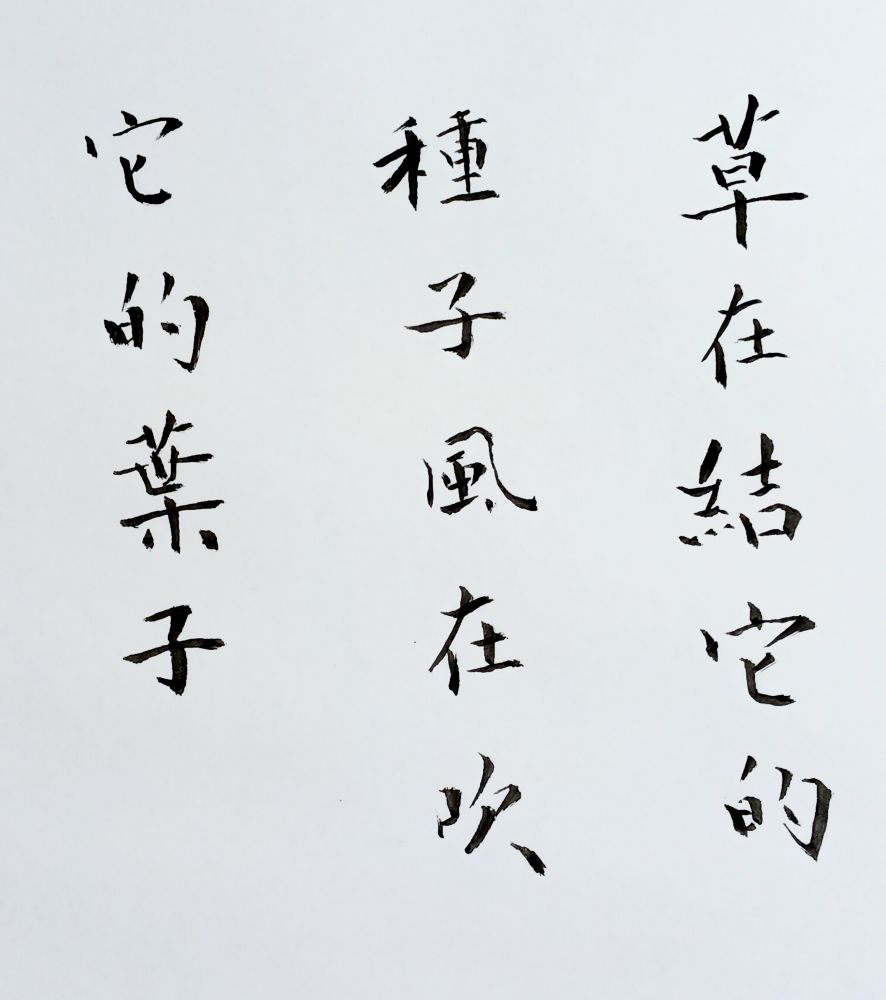 草在結它的
種子風在吹
它的葉子